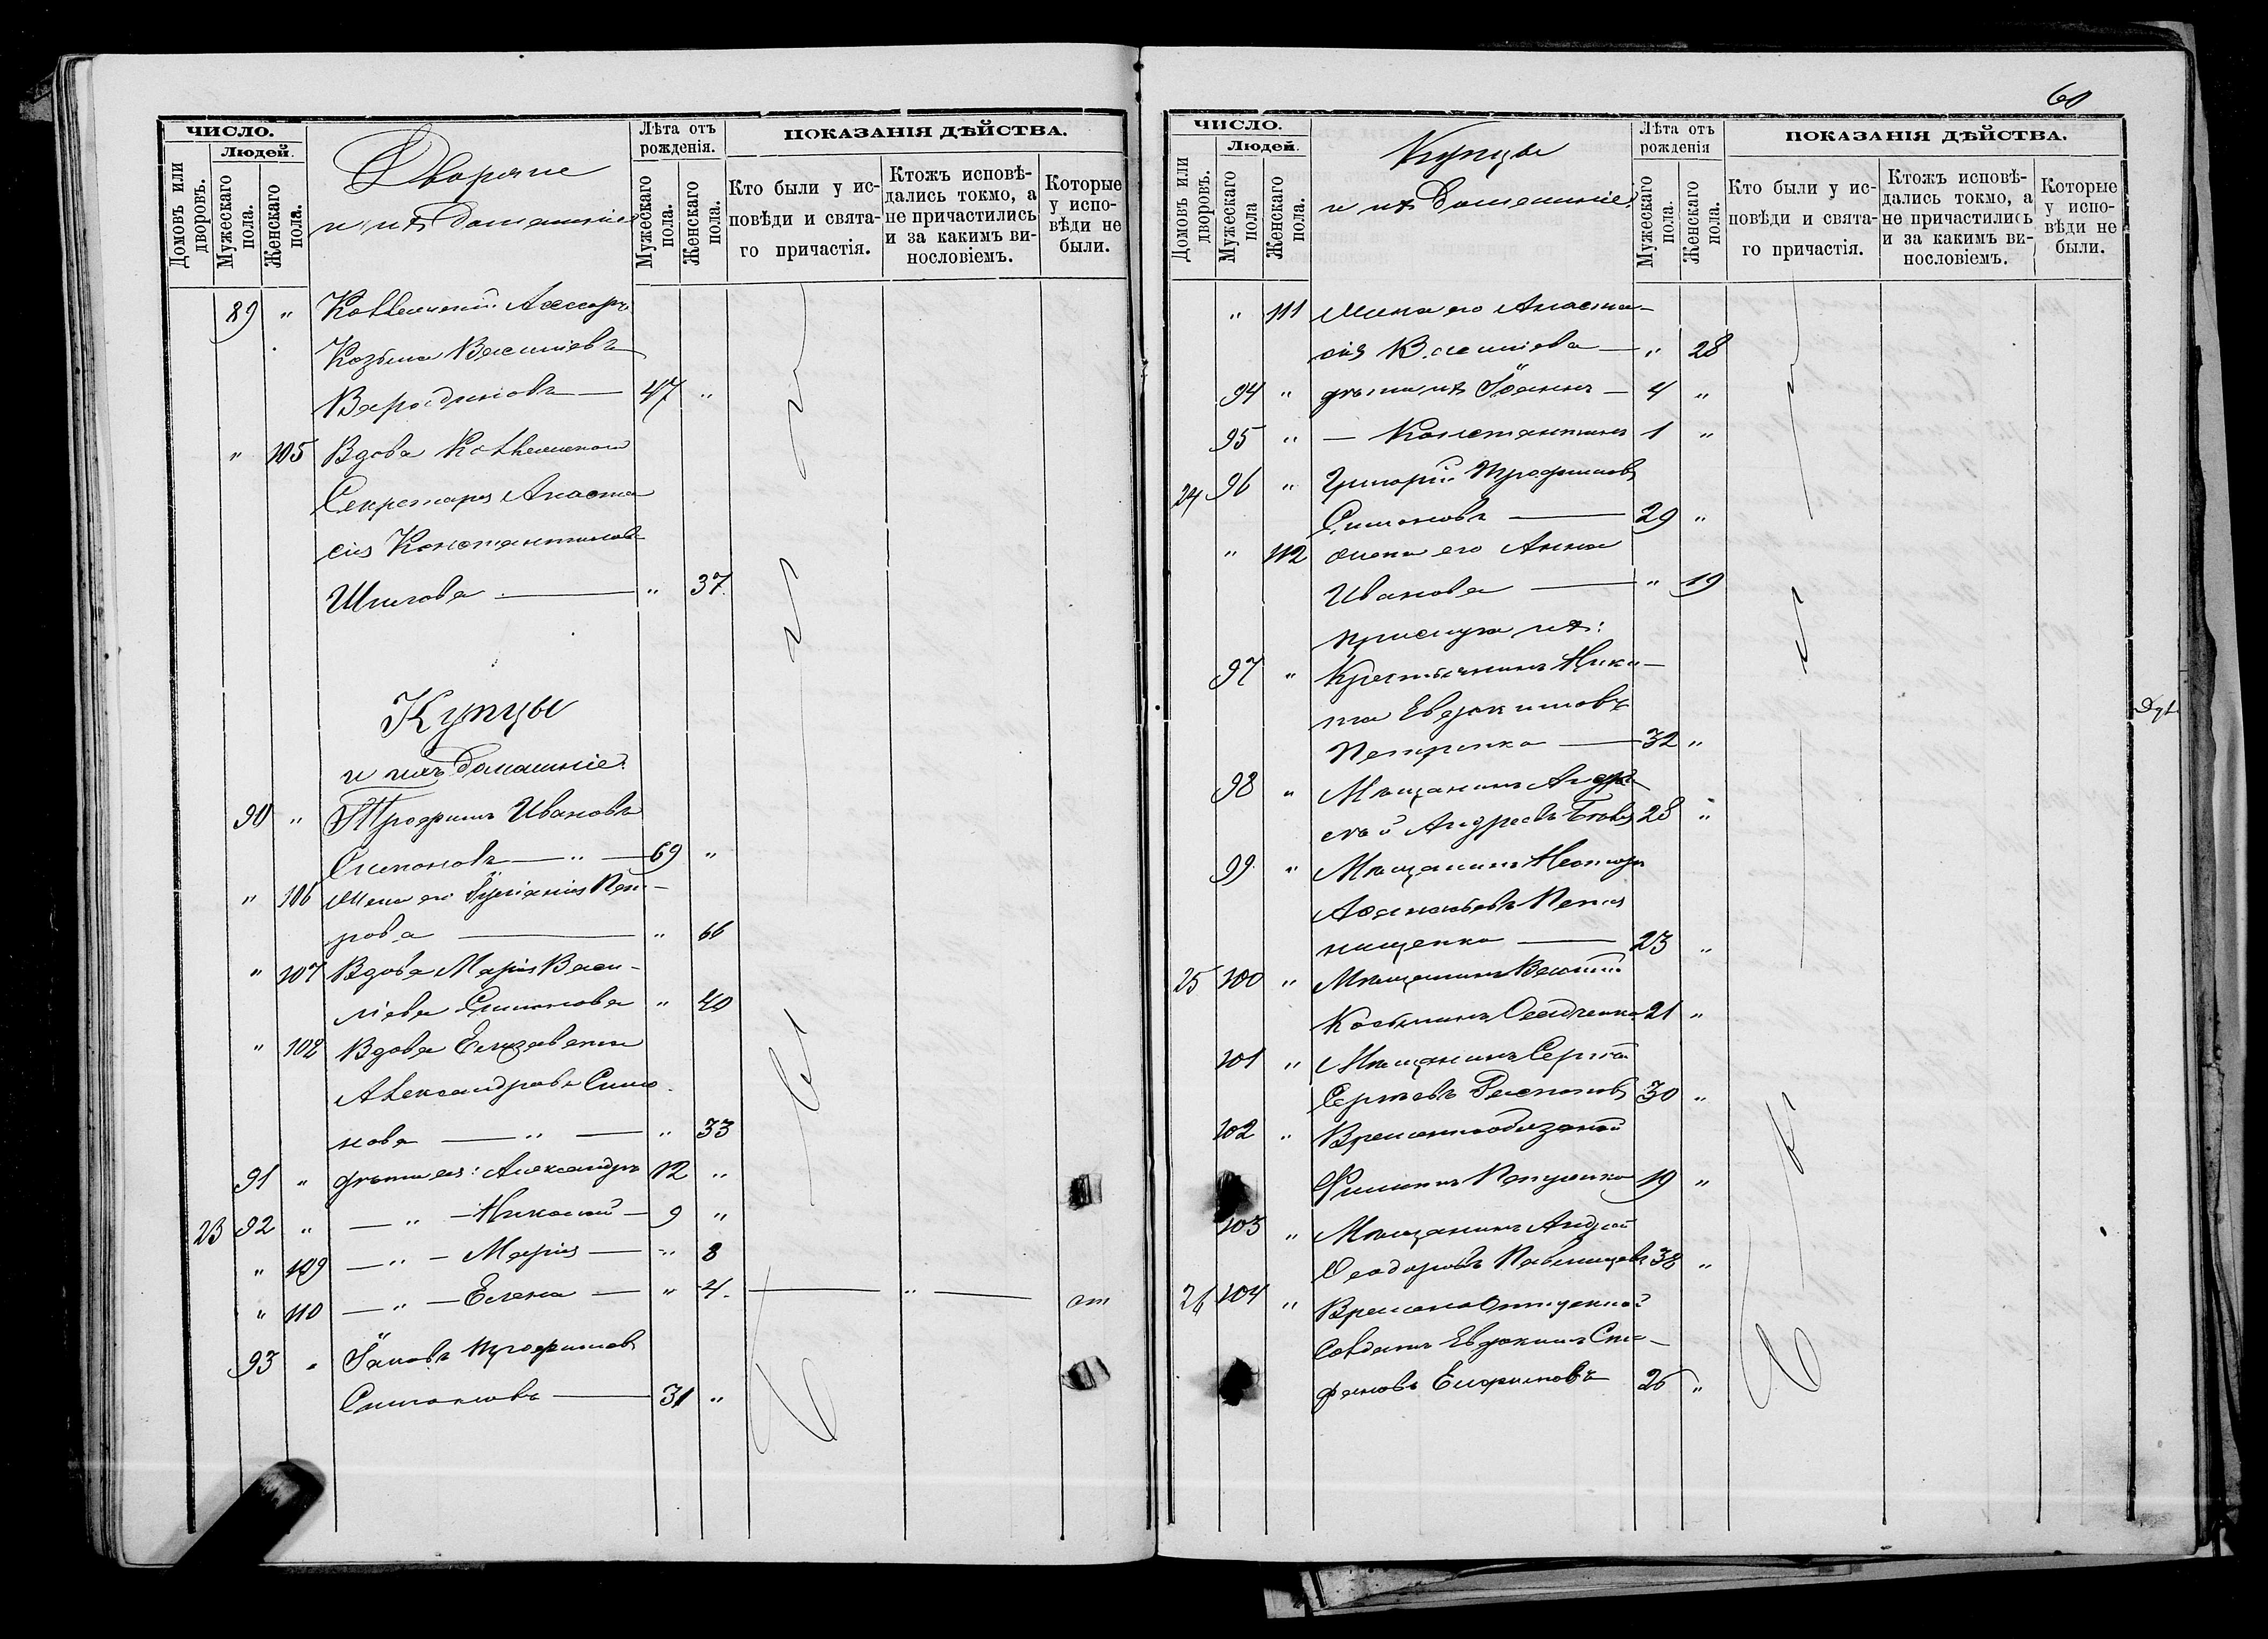 60
ЧИСЛО.
Людей.
Домовъ или дворовъ.
Мужескаго пола.
Женскаго пола.
Дворяне
и ихъ домашніе
Лѣта отъ рожденія.
Мужескаго пола.
Женскаго пола.
ПОКАЗАНІЯ ДѢЙСТВА.
Кто были у исповѣди и святаго причастія.
Ктожъ исповѣдались токмо, а не причастились и за какимъ винословіемъ.
Которые у исповѣди не были.
89 " Коллежскій Асессоръ
Козьма Васильевъ
47 "
" 105 Вдова Коллежскаго
Секретаря Анаста
сія Константинова
Шилова — " 37
Купцы
и ихъ домашніе.
90 " Трофимъ Ивановъ
Симоновъ — " — 69 "
" 106 Жена его Іуліанія Пет-
рова — " 66
" 107 Вдова Марія Васи-
ліева Симонова " 40
" 108 Вдова Елизавета
Александрова Симо-
нова — " — " 33
91 " дѣти ея: Александръ 12 "
23 92 " — " — Николай — 9 "
" 109 — " — Марія — " 8
" 110 — " — Елена — " 4. — " — от
93 " Іаковъ Трофимовъ
Симоновъ — 31 "
ЧИСЛО.
Людей.
Домовъ или дворовъ.
Мужескаго пола
Женскаго пола.
Купцы
и ихъ домашніе.
Лѣта отъ рожденія
Мужескаго пола.
Женскаго пола.
ПОКАЗАНІЯ ДѢЙСТВА.
Кто были у исповѣди и святаго причастія.
Ктожъ исповѣдались токмо, а не причастились и за какимъ винословіемъ.
Которые у исповѣди не были.
" 111 Жена его Анаста-
сія Василиева — " 28
94 " дѣти ихъ Іоаннъ — 4 "
95 " — Константинъ 1 "
24 96 " Григорій Трофимовъ
Симоновъ — 29 "
" 112 жена его Анна
Иванова — " 19
прислуга ихъ:
97 " Крестьянинъ Ники-
та Евдокимовъ
Петренко — 32 "
98 " Мѣщанинъ Андр
ей Андреевъ 28 "
99 " Мѣщанинъ
23 "
25 100 " Мѣщанинъ Василій
Козьминъ 21 "
101 " Мѣщанинъ Сергѣй
Сергѣевъ 30 "
102 " Временнообязаной
Филиппъ 19 "
103 " Мѣщанинъ Андрей
Ѳеодоровъ 38 "
26 104 " Временноотпускной
Солдатъ Евдокимъ Сте-
фановъ Ефимовъ 26 "